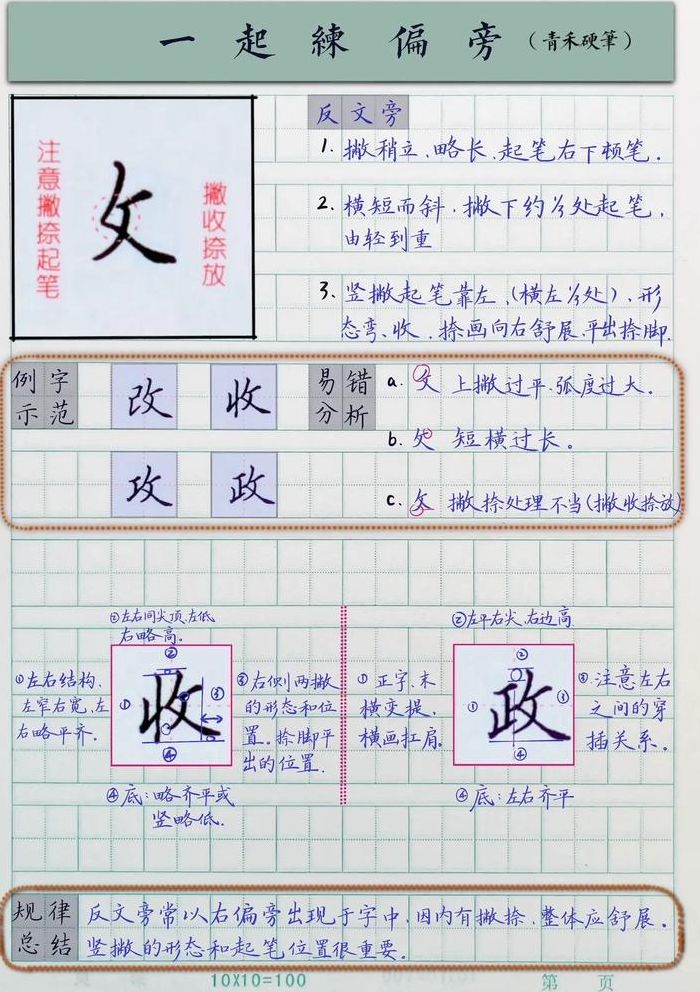 一起練偏旁(青禾硬筆)
注意撇捺起笔
攵
撇收捺放
反文旁
1. 撇稍立、略长、起笔右下顿笔.
2. 横短而斜.撇下约⅓处起笔,
由轻到重
3. 竖撇起笔靠左,(横左⅓处),形
态弯、收.捺画向右舒展,平出捺脚.
例字
示范
改 收
攻 政
易错
分析
a. 攵 上撇过平.弧度过大.
b. 攵 短横过长。
c. 攵 撇捺处理不当(撇收捺放)
①左右结构、
左窄右宽、左
右略平齐.
②左右同尖顶.左低
右略高.
收
① ② ③ ④
③右侧两撇
的形态和位
置。捺脚平
出的位置.
④底:略齐平或
竖略低.
①正字、末
横变提.
横画扛肩。
②左平右尖、右边高
政
① ② ③ ④
③.注意左右
之间的穿
插关系.
④底:左右齐平
规律
总结
反文旁常以右偏旁出现于字中,因内有撇捺、整体应舒展.
竖撇的形态和起笔位置很重要.
10X10=100
第 页